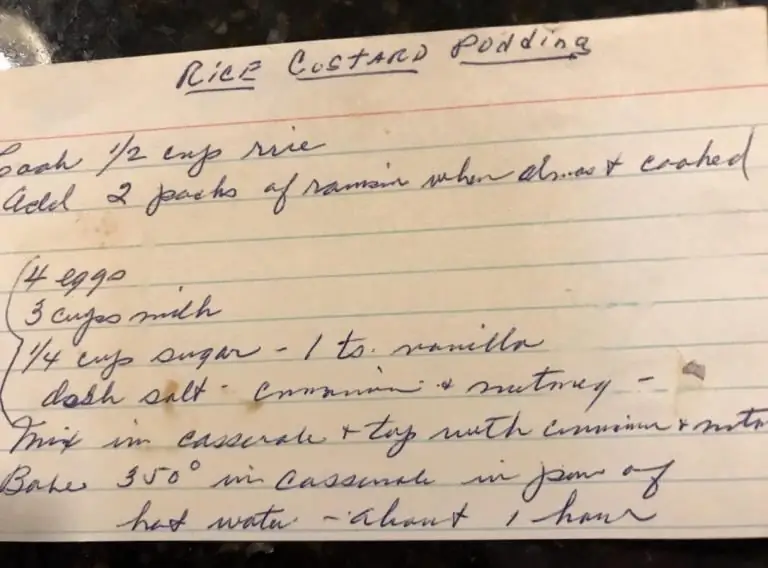 RICE CUSTARD PUDDING
Cook 1/2 cup rice
Add 2 packs of raisin when almost cooked
4 eggs
3 cups milk
1/4 cup sugar - 1 ts. vanilla
dash salt - cinnamon & nutmeg -
Mix in casserole & top with cinnamon &
Bake 350° in casserole in pan of
hot water - about 1 hour